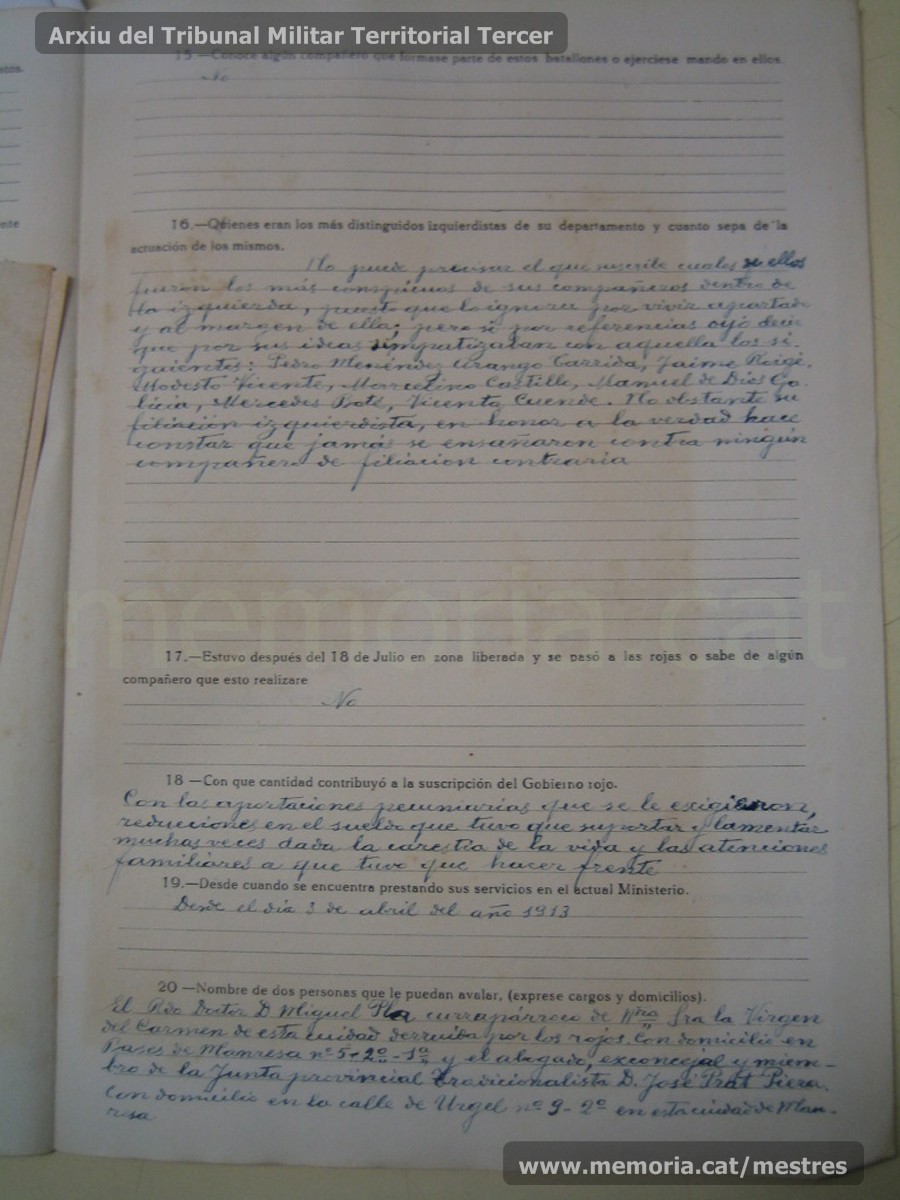 Arxiu del Tribunal Militar Territorial Tercer
15.—Conoce algún compañero que formase parte de estos batallones o ejerciese mando en ellos.
No
16.—Quienes eran los más distinguidos izquierdistas de su departamento y cuanto sepa de la
actuación de los mismos.
No puede precisar el que suscribe cuales de ellos
fueron los más conspicuos de sus compañeros dentro de
la izquierda, puesto que lo ignora por vivir apartado
y al margen de ella; pero si por referencias oyó decir
que por sus ideas simpatizaban con aquella los si-
guientes: Pedro Menéndez Arango Garrida, Jaime Roigé,
Modesto Vicente, Marcelino Castillo, Manuel de Dios Ga-
licia, Mercedes Vicenta Cuende. No obstante su
filiación izquierdista, en honor a la verdad hace
constar que jamás se ensañaron contra ningún
compañero de filiacion contraria
17.—Estuvo después del 18 de Julio en zona liberada y se pasó a las rojas o sabe de algún
compañero que esto realizare
No
18 —Con que cantidad contribuyó a la suscripción del Gobierno rojo.
Con las aportaciones pecuniarias que se le exigieron,
reducciones en el sueldo que tuvo que suportar y lamentar
muchas veces dada la carestia de la vida y las atenciones
familiares a que tuvo que hacer frente
19.—Desde cuando se encuentra prestando sus servicios en el actual Ministerio.
Desde el día 3 de abril del año 1913
20 —Nombre de dos personas que le puedan avalar, (exprese cargos y domicilios).
El Rdo Doctor D Miguel Pla currapárroco de Nra Sra la Virgen
del Carmen de esta ciudad derruiba por los rojos. Con domicilio en
Bases de Manresa nº 5, 2º - 1ª y el abogado, exconcejal y miem-
bro de la Junta provincial tradicionalista D. José Prat Piera.
con domicilio en la calle de Urgel nº 9 - 2º en esta ciudad de Man-
resa
memoria.cat
www.memoria.cat/mestres